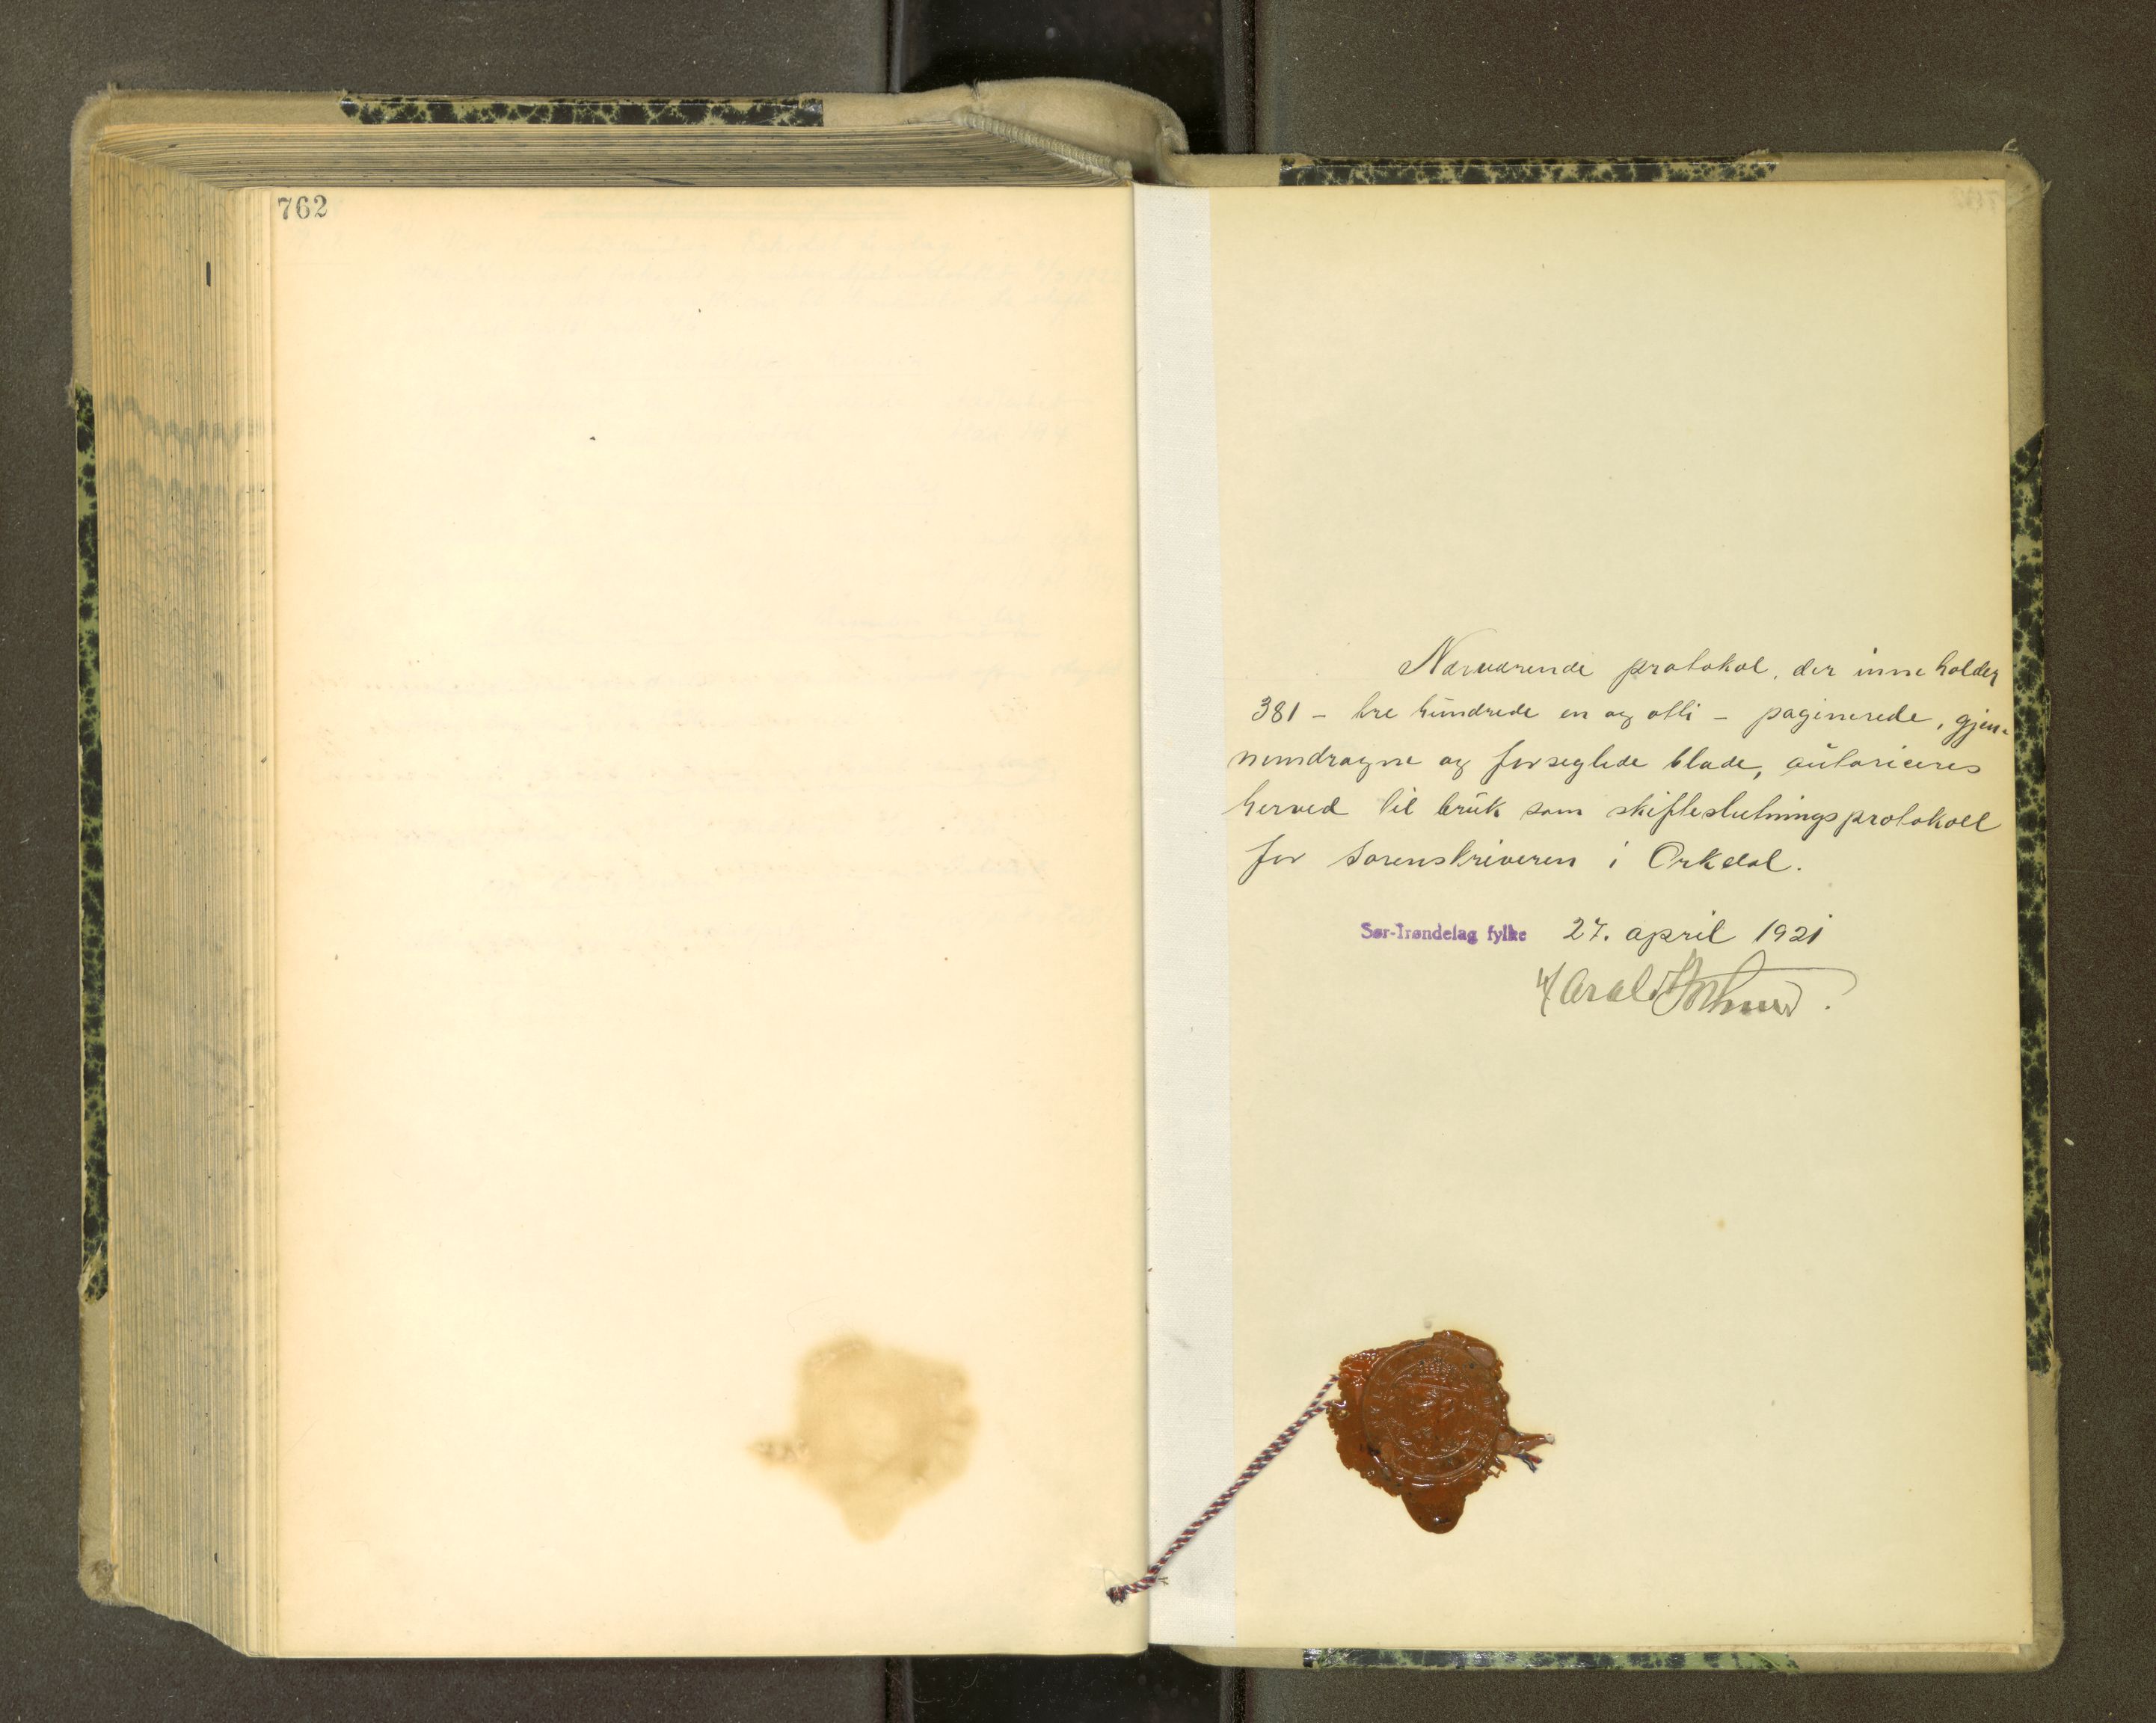 762
Nærværende protokol, der inneholder
381 - tre hundrede en og otti - paginerede, gjen-
nemdragne og forseglede blade, autoriceres
herved til bruk som skifteslutningsprotokoll
for sorenskriveren i Orkdal.
Sør-Trøndelag fylke 27. april 1921
Harald